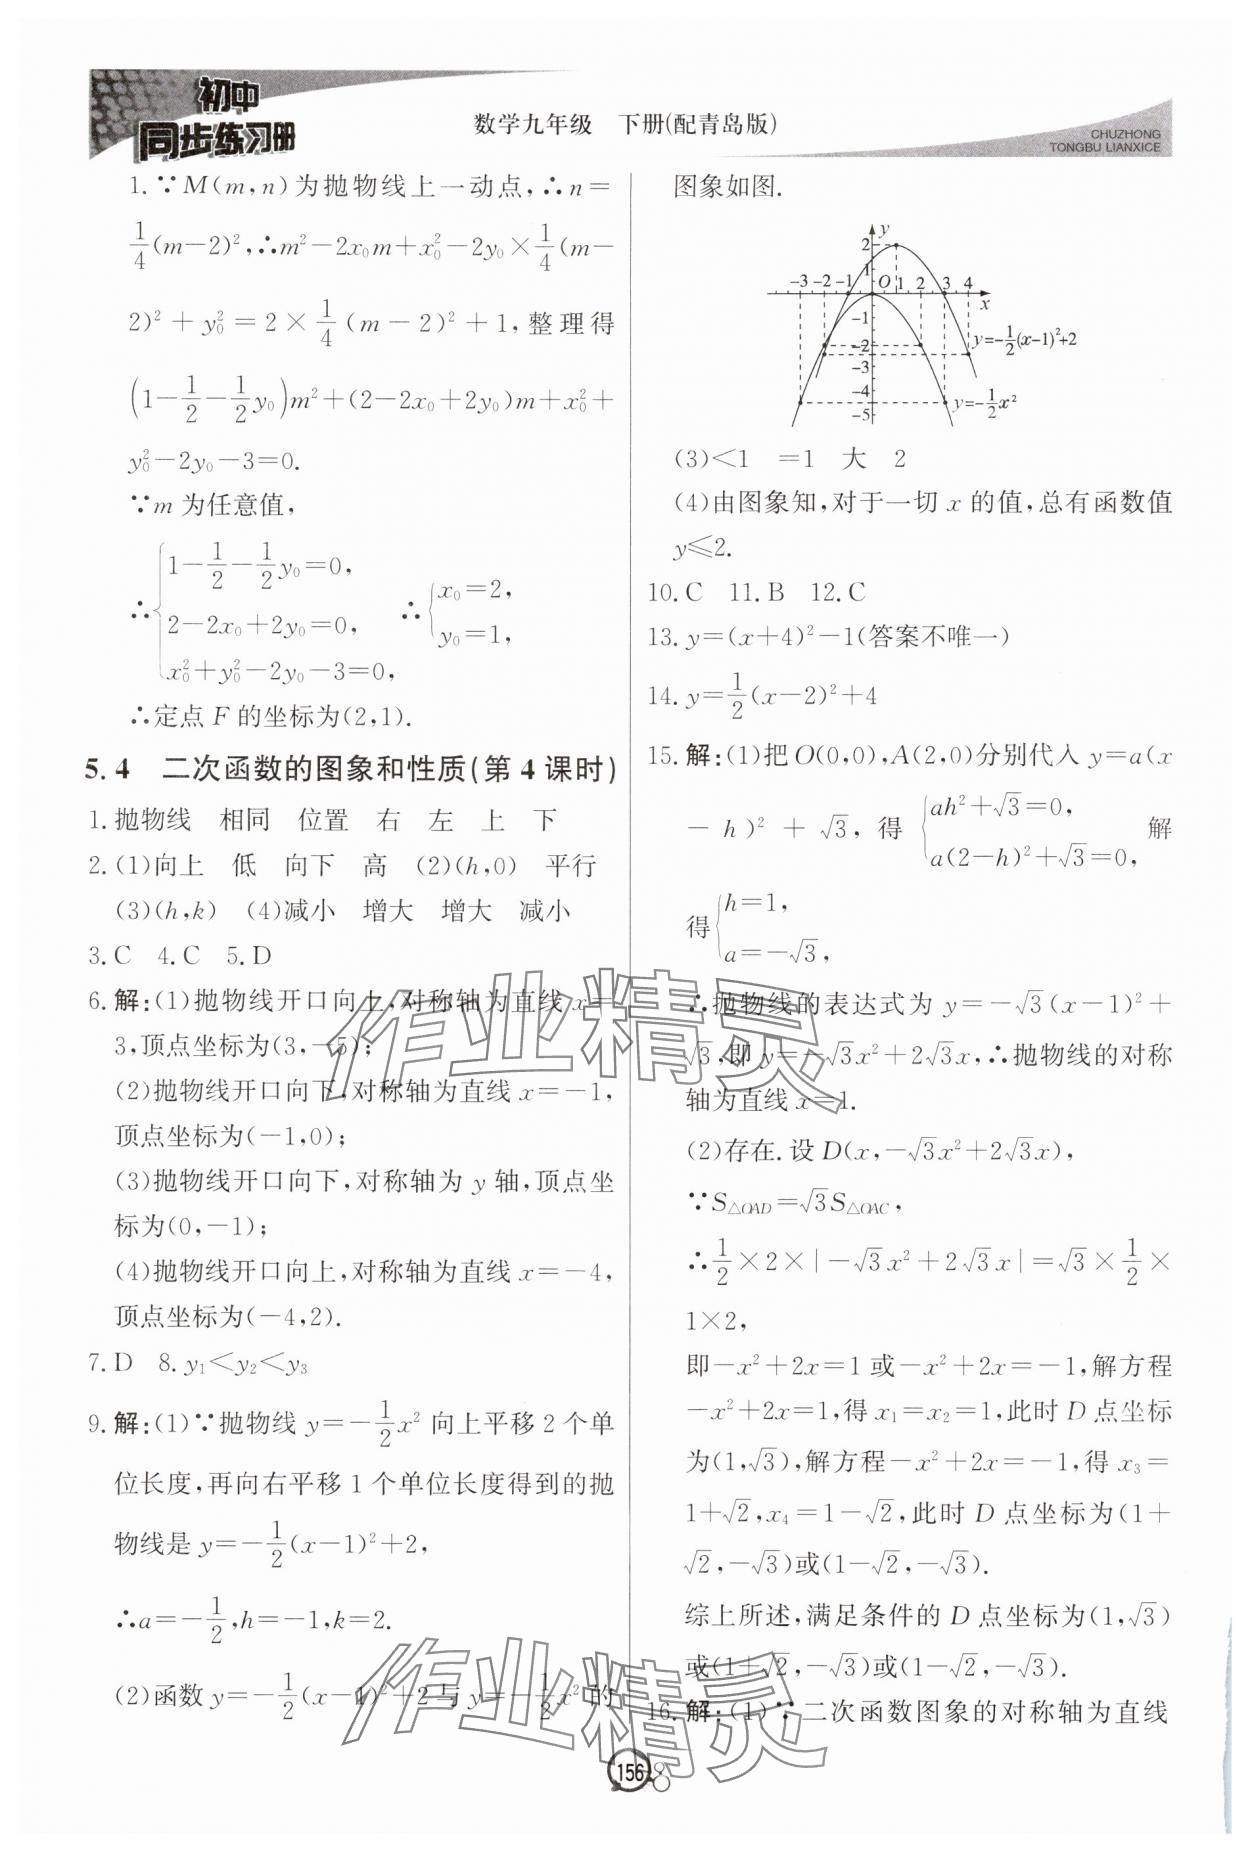 初中
同步练习册
数学九年级 下册(配青岛版)
CHUZHONG
TONGBU LIANXICE
1.∵M(m,n)为抛物线上一动点,∴n=
1/4(m-2)²,∴m²-2x₀m+x₀²-2y₀×1/4(m-
2)²+y₀²=2×1/4(m-2)²+1,整理得
(1-1/2-1/2y₀)m²+(2-2x₀+2y₀)m+x₀²+
y₀²-2y₀-3=0.
∵m为任意值,
∴{1-1/2-1/2y₀=0, 2-2x₀+2y₀=0, x₀²+y₀²-2y₀-3=0, ∴{x₀=2, y₀=1,
∴定点F的坐标为(2,1).
5.4 二次函数的图象和性质(第4课时)
1.抛物线 相同 位置 右 左 上 下
2.(1)向上 低 向下 高 (2)(h,0) 平行
(3)(h,k) (4)减小 增大 增大 减小
3.C 4.C 5.D
6.解:(1)抛物线开口向上,对称轴为直线x=
3,顶点坐标为(3,-5);
(2)抛物线开口向下,对称轴为直线x=-1,
顶点坐标为(-1,0);
(3)抛物线开口向下,对称轴为y轴,顶点坐
标为(0,-1);
(4)抛物线开口向上,对称轴为直线x=-4,
顶点坐标为(-4,2).
7.D 8.y₁<y₂<y₃
9.解:(1)∵抛物线y=-1/2x²向上平移2个单
位长度,再向右平移1个单位长度得到的抛
物线是y=-1/2(x-1)²+2,
∴a=-1/2,h=-1,k=2.
(2)函数y=-1/2(x-1)²+2与y=-1/2x²的
图象如图.
y
2
1
-3 -2 -1 O 1 2 3 4 x
-1
-2
-3
-4
-5
y=-1/2(x-1)²+2
y=-1/2x²
(3)<1 =1 大 2
(4)由图象知,对于一切x的值,总有函数值
y≤2.
10.C 11.B 12.C
13.y=(x+4)²-1(答案不唯一)
14.y=1/2(x-2)²+4
15.解:(1)把O(0,0),A(2,0)分别代入y=a(x
-h)²+√3,得{ah²+√3=0, a(2-h)²+√3=0, 解
得{h=1, a=-√3,
∴抛物线的表达式为y=-√3(x-1)²+
√3,即y=-√3x²+2√3x,∴抛物线的对称
轴为直线x=1.
(2)存在.设D(x,-√3x²+2√3x),
∵S△OAD=√3S△OAC,
∴1/2×2×|-√3x²+2√3x|=√3×1/2×
1×2,
即-x²+2x=1或-x²+2x=-1,解方程
-x²+2x=1,得x₁=x₂=1,此时D点坐标
为(1,√3),解方程-x²+2x=-1,得x₃=
1+√2,x₄=1-√2,此时D点坐标为(1+
√2,-√3)或(1-√2,-√3).
综上所述,满足条件的D点坐标为(1,√3)
或(1+√2,-√3)或(1-√2,-√3).
16.解:(1)∵二次函数图象的对称轴为直线
156
作业精灵
作业精灵